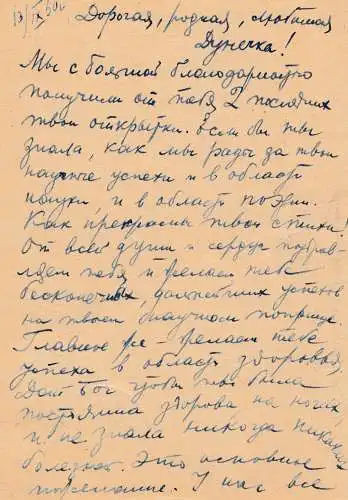 13/IX 50г. Дорогая, родная, любимая
Дунечка!
Мы с большой благодарностью
получили от тебя 2 последних
твои открытки. Если бы ты
знала, как мы рады за твои
научные успехи и в области
науки, и в области поэзии.
Как прекрасны твои стихи!
От всей души и сердца поздрав-
ляем тебя и желаем тебе
бесконечных, дальнейших успехов
на твоем научном поприще.
Главное же - желаем тебе
успеха в области здоровья.
Дай Бог чтобы ты была
постоянна здорова на ногах,
и не знала никогда никаких
болезней. Это основное
пожелание. У нас все